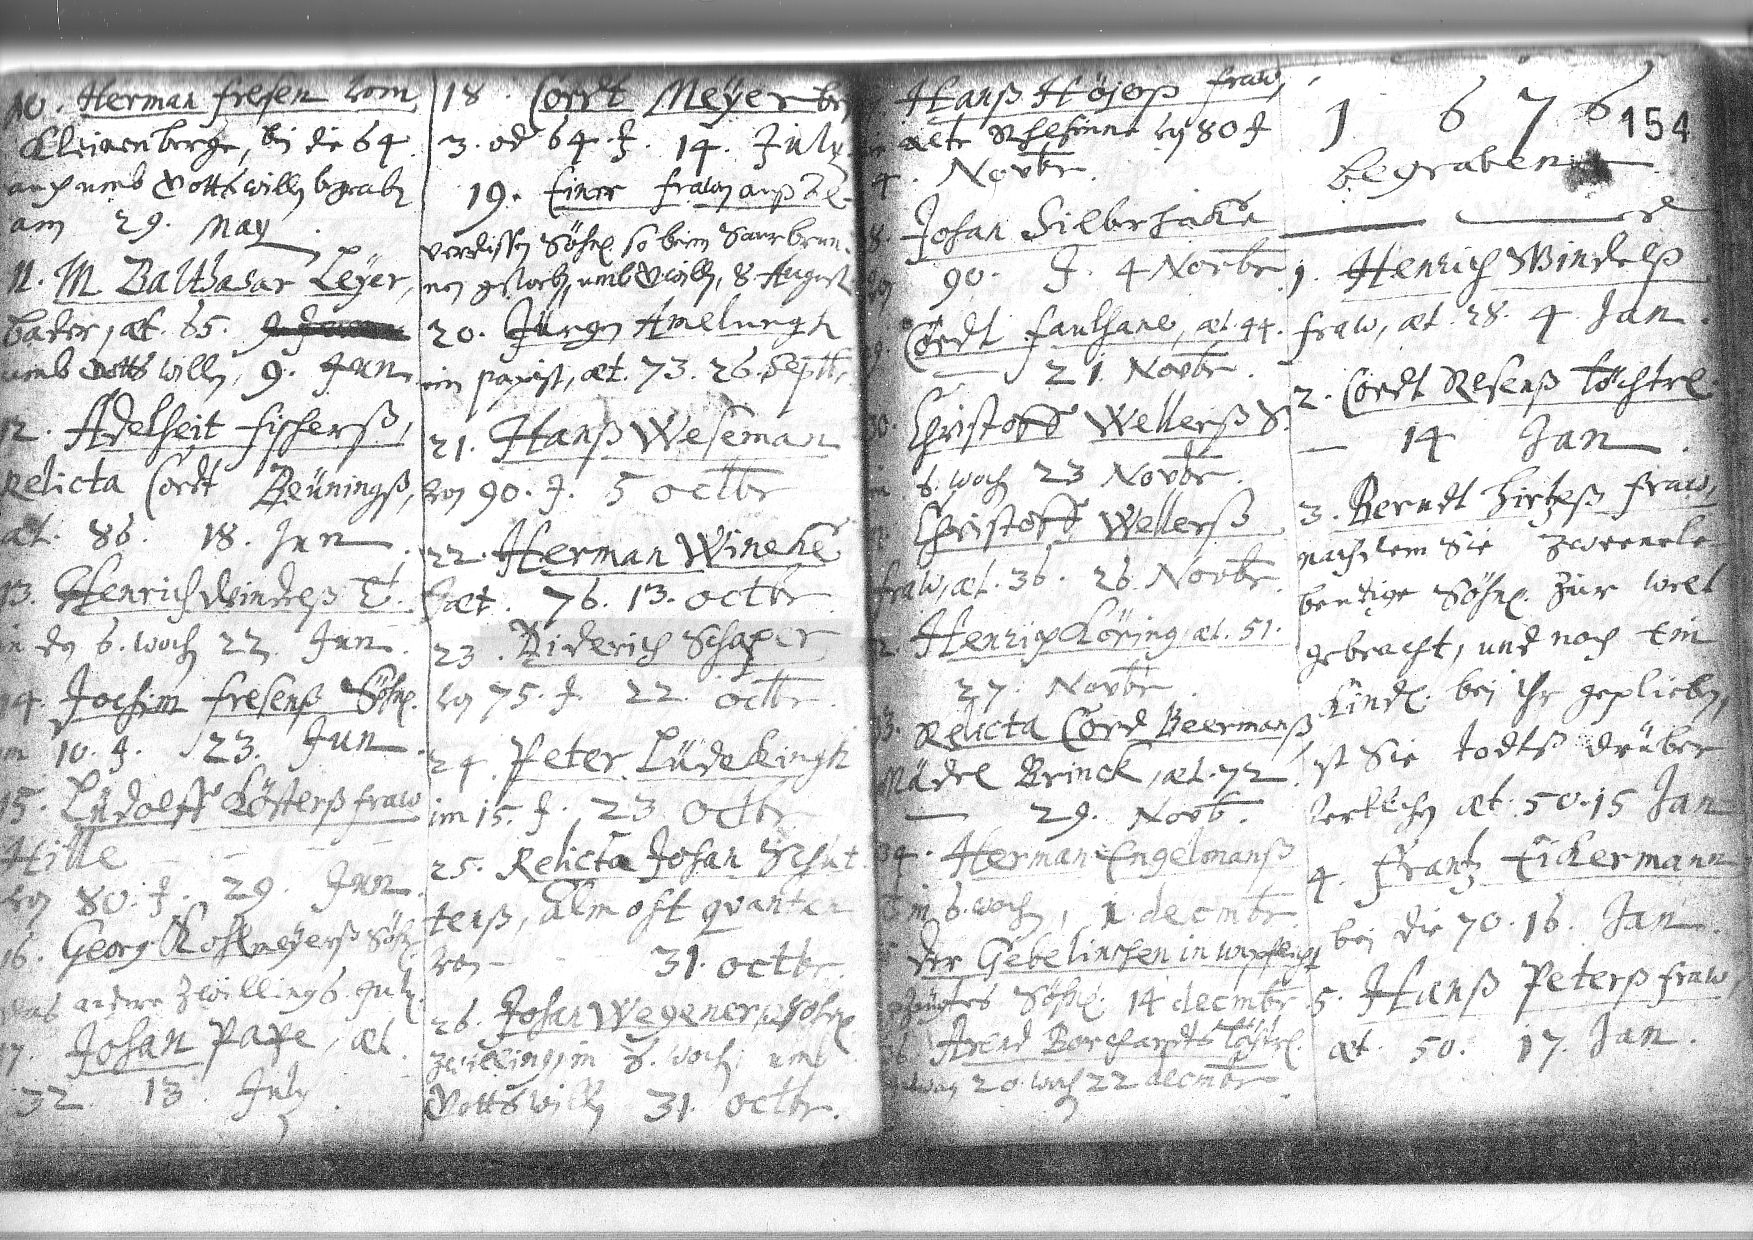 10. Herman Fresen vom
Kleinenberge, bei die 64
auch umb Gotts willn begrabn
am 29. May
11. M Balthasar Leÿer,
bader, æt. 65.
umb Gotts willn, 9. Jun.
12. Adelheit Fischerß,
Relicta Cordt Beüningß,
æt. 86. 18. Jun
13. Henrich Windelß T.
in dn 6. wochn 22 Jun.
14. Jochim Fresenß Söhnl.
im 10. J. 23. Jun
15. Lüdolff Kösterß fraw
Hille
von 80. J. 29. Jun.
16. Georg Kohlmeÿerß Söhnl.
das andere Zwillings. July.
17. Johan Pape, æt.
32. 13 July.
18. Cordt Meÿer
3. od 64. J. 14. July.
19. Einer frawn auß
verdissen Söhnl. so beim Saurbrun-
nen gestorbn, umb G willn, 8. August
20. Jürgn Amelungh
ein papist, æt. 73. 26. Septbr.
21. Hanß Weseman
von 90. J. 5 octbr
22. Herman Wineke
æt. 76. 13. octbr.
23. Diderich Schaper
von 75. J. 22. octbr.
24. Peter Lüdekingh
im 15. J. 23 octbr
25. Relicta Johan Schlut
terß, Almost
von 31. octbr.
26. Johan Wegenerß Söhnl.
zwilling, im 3. woch. umb
Gotts willn 31. octbr.
Hanß Höjerß fraw,
alte von 80 J
4. Novbr.
8. Johan Silberhake
von 90. J. 4 Novbr.
9. Cordt Faulhane, æt. 44.
21. Novbr.
30. Christoff Wellerß S.
im 6. woch 23 Novbr.
Christoff Wellerß
fraw, æt. 36. 26. Novbr.
2. Henrich Köring, æt. 51.
27. Novbr.
3. Relicta Cord Beermanß
Brinck, æt. 72
29. Novb.
34. Herman Engelmanß
im 6. woch, 1. decmbr.
der Gebelinschen in
Söhnl. 14 decmbr
Arend Borchardts Töchtrl.
20. woch 22 decmbr.
1 6 7 6
154
begraben
1. Henrich Windelß
fraw, æt. 28. 4 Jan.
2. Cordt Resenß Töchtrl.
14 Jan.
3. Berndt Hirtzß fraw,
nachdem Sie zweene le-
bendige Söhnl. zur welt
gebracht, und noch Ein
Kindl. bei ihr gepliebn,
ist Sie todts drüber
verblichn æt. 50. 15 Jan
4. Frantz Eickermann
bei die 70. 16. Jan.
5. Hanß Peterß fraw,
æt. 50. 17. Jan.